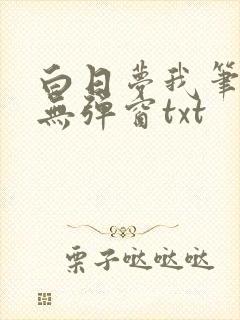 白日夢我筆
無彈窗txt
栗子哒哒哒